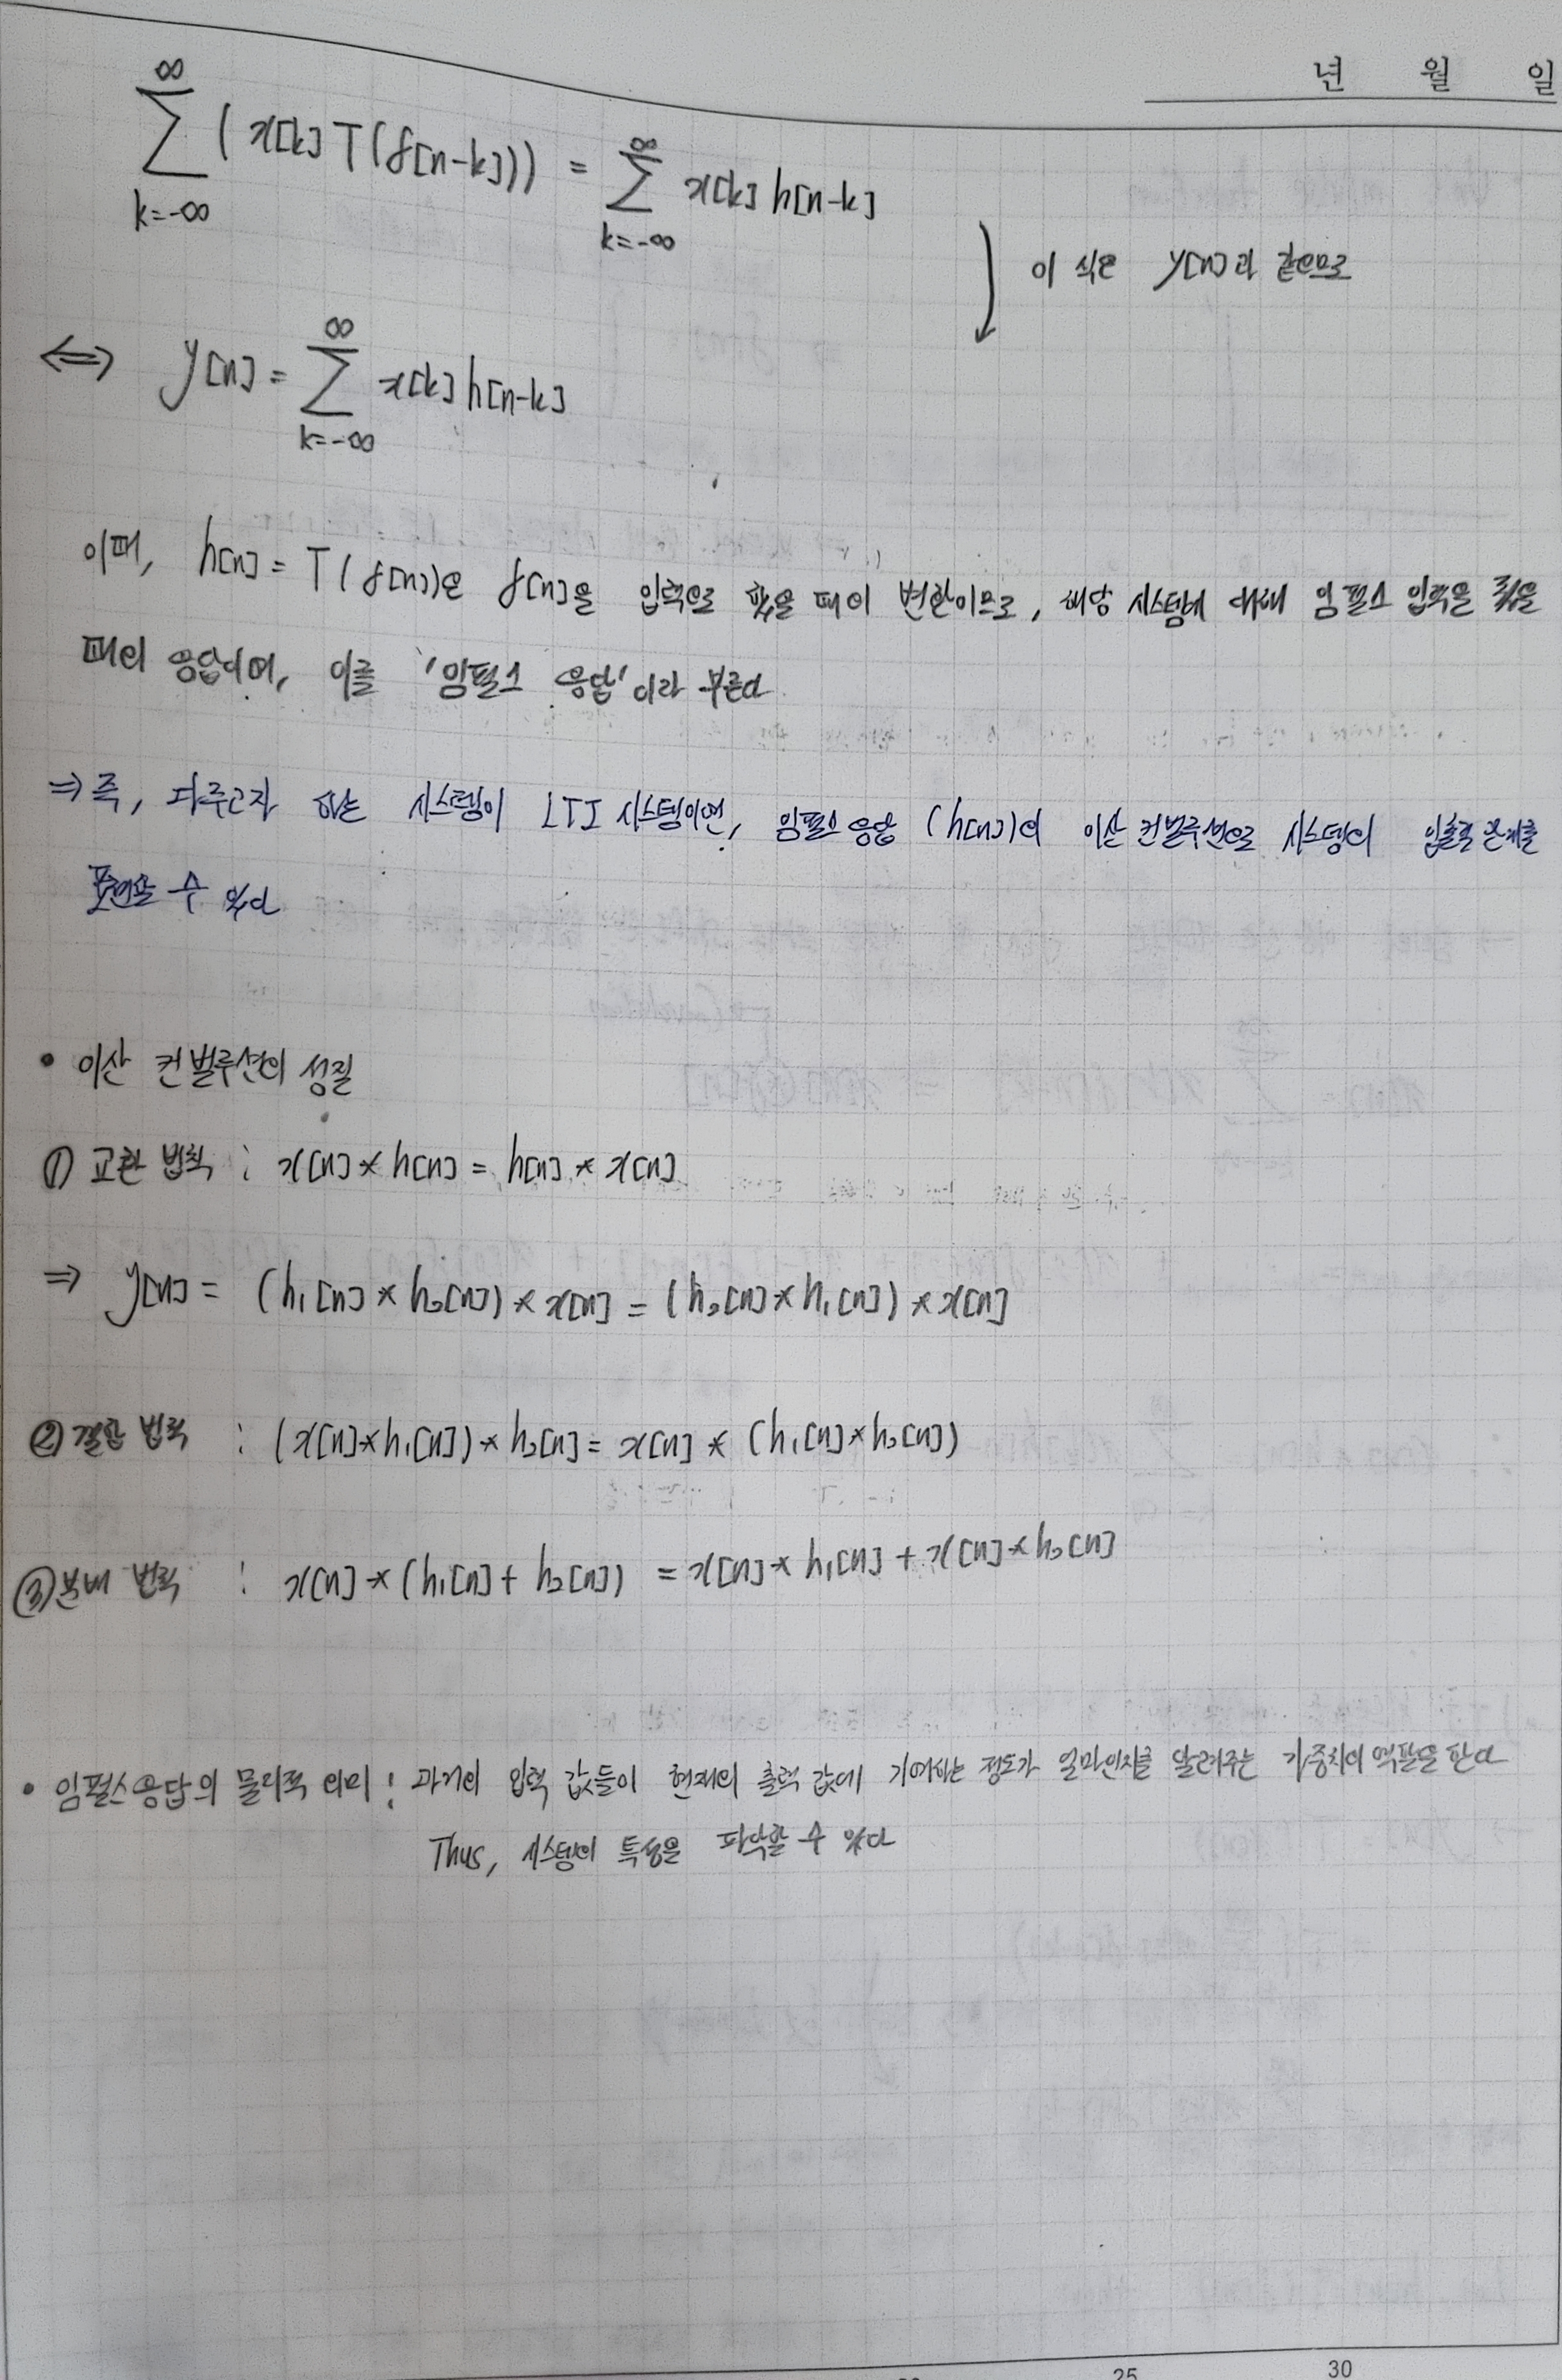 년 월 일
∞ ∑ k=-∞ (x[k] T(δ[n-k])) = ∞ ∑ k=-∞ x[k] h[n-k]
이 식은 y[n]과 같으므로
⇔ y[n] = ∞ ∑ k=-∞ x[k] h[n-k]
이때, h[n] = T(δ[n])은 δ[n]을 입력으로 줬을 때의 변환이므로, 해당 시스템에 대해 임펄스 입력을 줬을
때의 응답이며, 이를 '임펄스 응답'이라 부른다
⇒ 즉, 다루고자 하는 시스템이 LTI 시스템이면, 임펄스 응답 (h[n])의 이산 컨벌루션으로 시스템의 입출력 관계를
표현할 수 있다
• 이산 컨벌루션의 성질
① 교환 법칙 : x[n] * h[n] = h[n] * x[n]
⇒ y[n] = (h₁[n] * h₂[n]) * x[n] = (h₂[n] * h₁[n]) * x[n]
② 결합 법칙 : (x[n] * h₁[n]) * h₂[n] = x[n] * (h₁[n] * h₂[n])
③ 분배 법칙 : x[n] * (h₁[n] + h₂[n]) = x[n] * h₁[n] + x[n] * h₂[n]
• 임펄스응답의 물리적 의미 : 과거의 입력 값들이 현재의 출력 값에 기여하는 정도가 얼마인지를 알려주는 가중치의 역할을 한다
Thus, 시스템의 특성을 파악할 수 있다
25 30